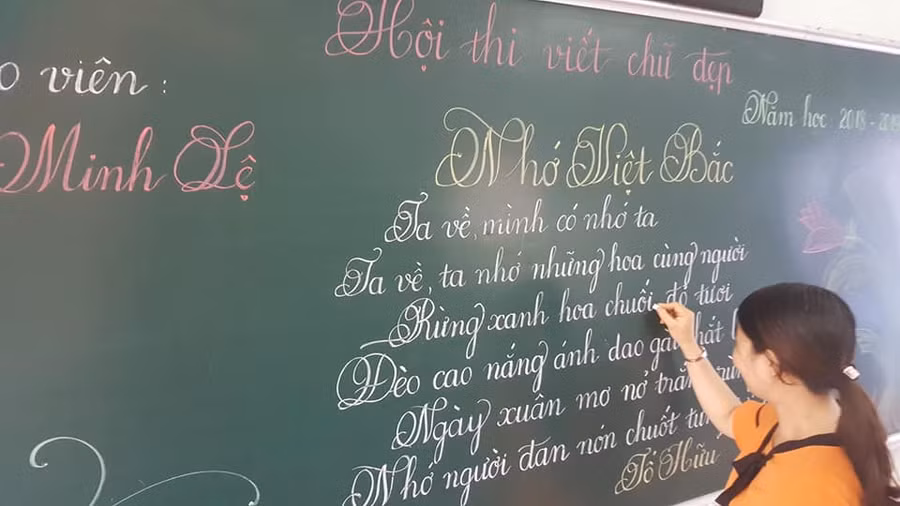 o viên :
Minh Lệ
Hội thi viết chữ đẹp
Năm học 2018 - 2019
Nhớ Việt Bắc
Ta về, mình có nhớ ta
Ta về, ta nhớ những hoa cùng người
Rừng xanh hoa chuối đỏ tươi
Đèo cao nắng ánh dao
Ngày xuân mơ nở
Nhớ người đan nón chuốt
Tố Hữu